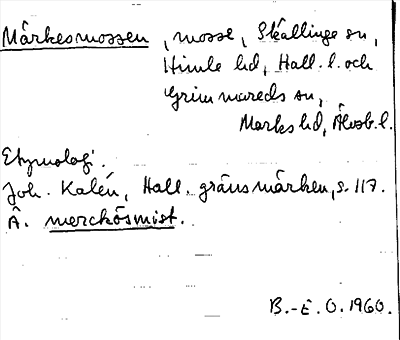 Märkesmossen, mosse, Skällinge sn,
Himle hd, Hall. l. och
Grimmareds sn,
Marks hd, Älvsb. l.
Etymologi.
Joh. Kalén, Hall. gränsmärken, s. 117.
Â. merckösmist.
B.-E. O. 1960.